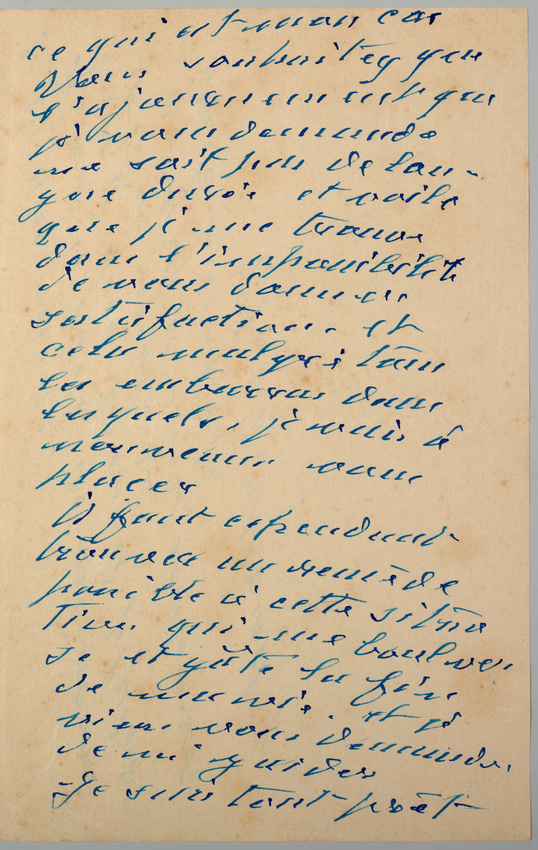 ce qui est mon cas
Vous souhaitez que
l'ajournement que
je vous demande
ne soit pas de lon-
gue durée et voilà
que je me trouve
dans l'impossibilité
de vous donner
satisfaction. et
cela malgré tous
les embarras dans
lesquels, je vais à
nouveau vous
placer
Il faut cependant
trouver un remède
possible à cette situa
tion qui me boulever
se et gâte la fin
de ma vie. et je
viens vous demander
de me guider
Je suis tout prêt